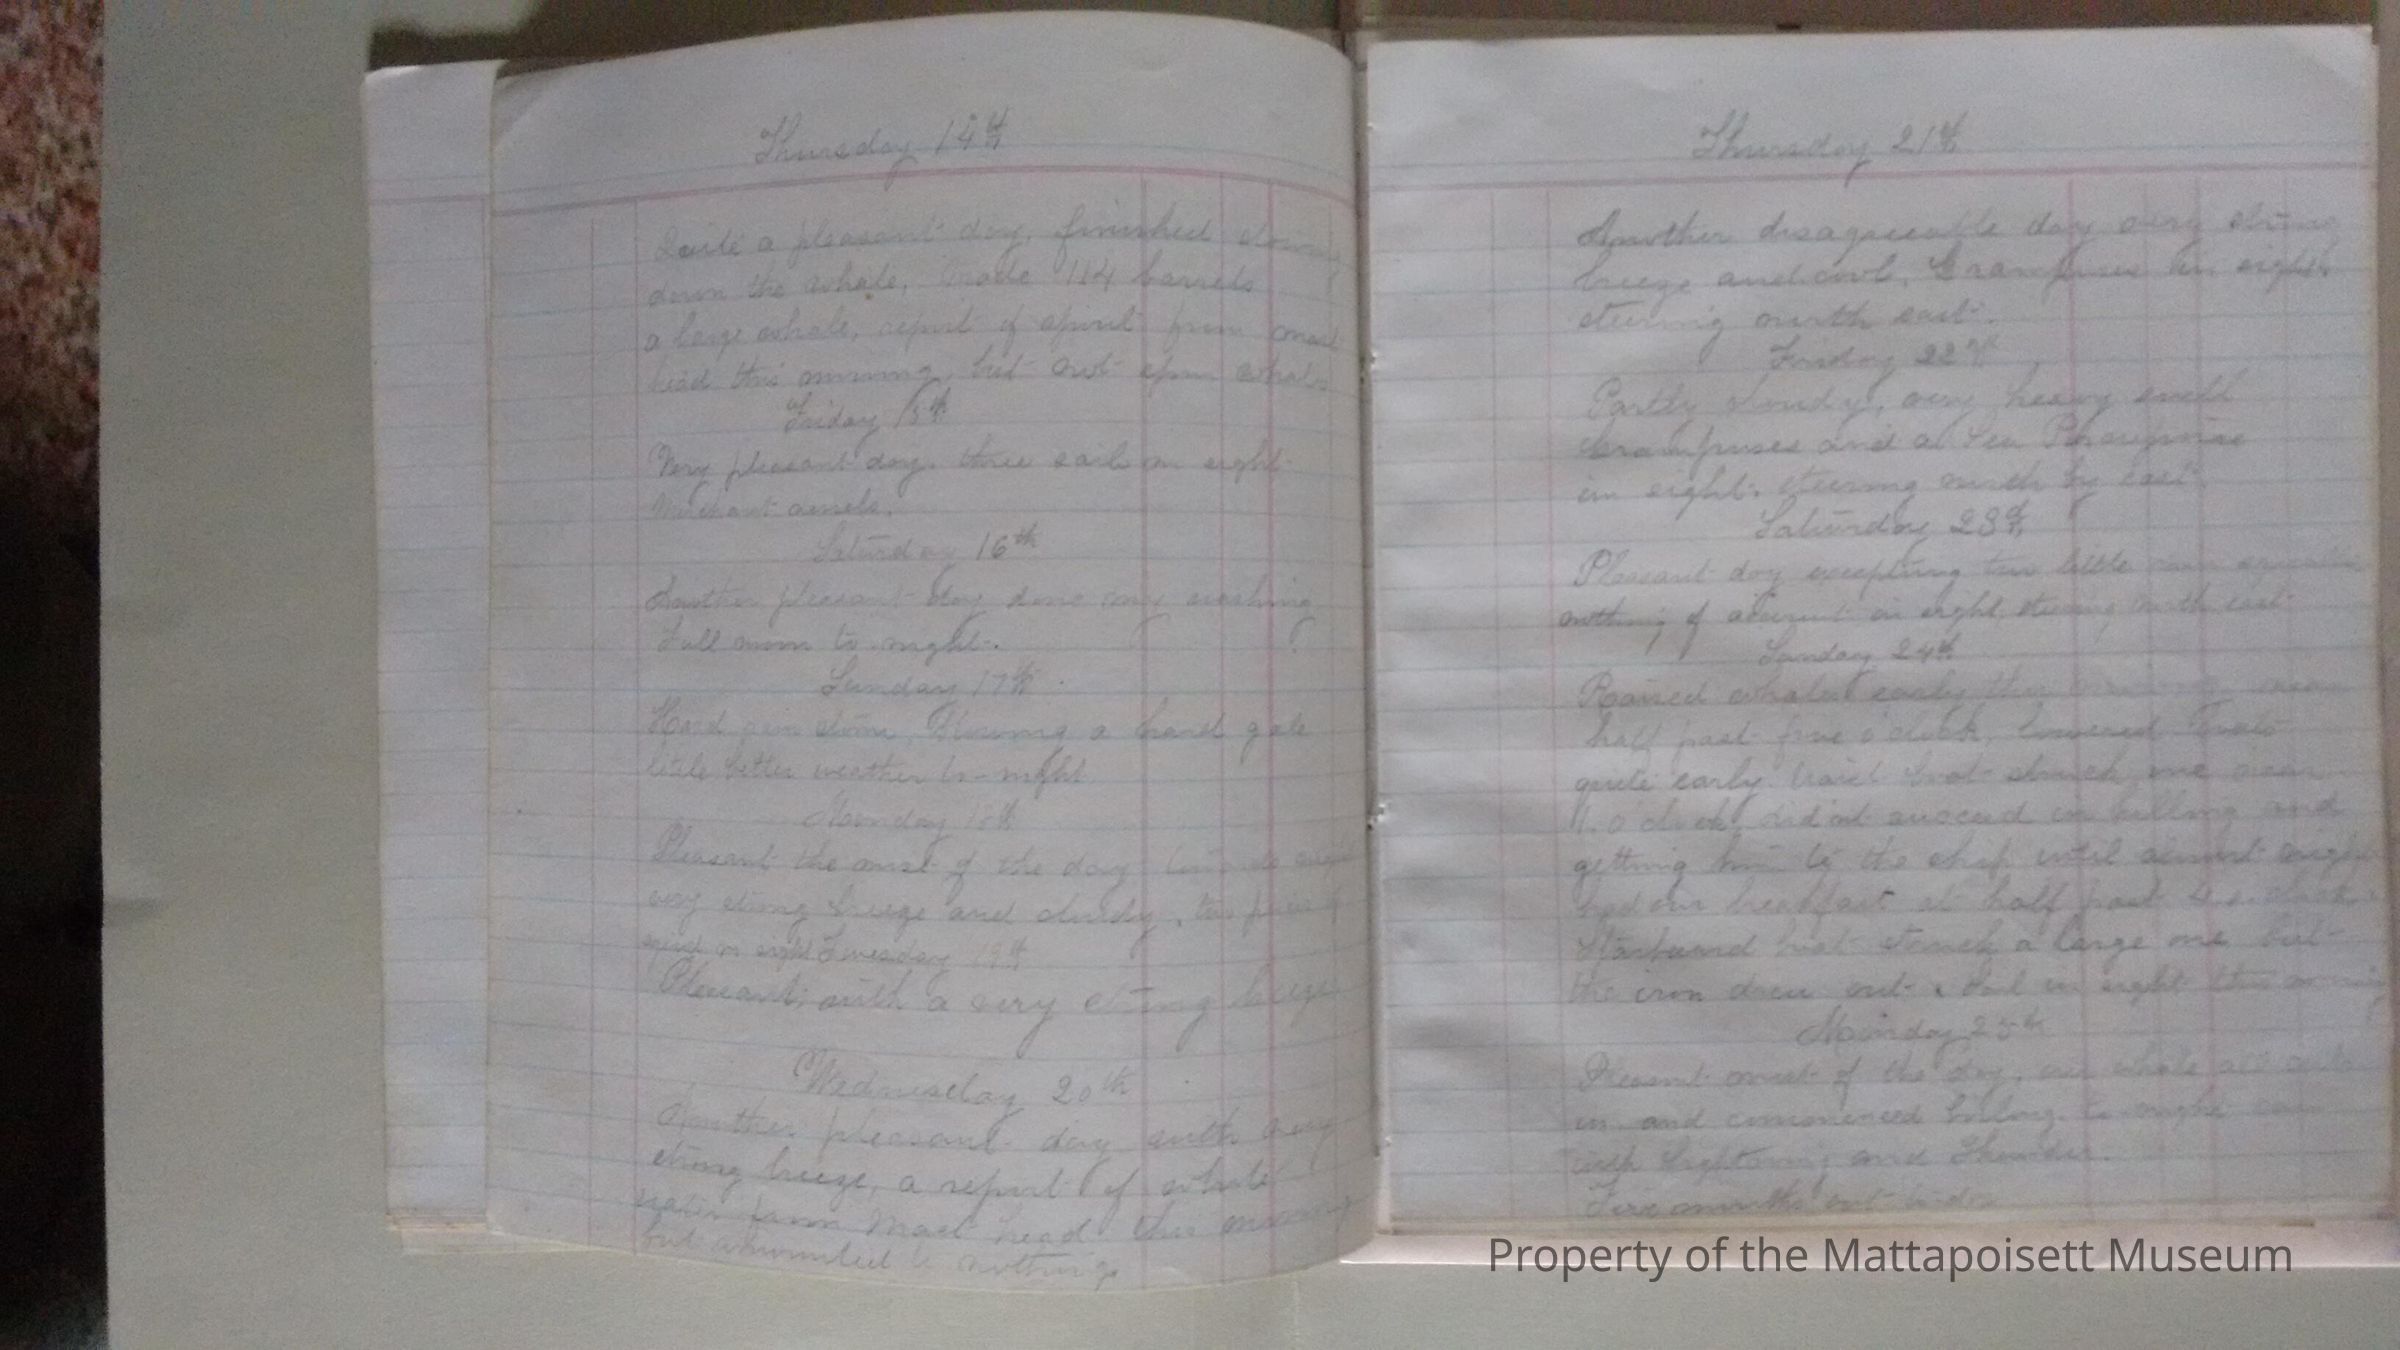 Thursday 14th
Quite a pleasant day, finished stowing
down the whale, Made 114 barrels
a large whale, report of spout from mast
head this morning, but not sperm whales
Friday 15th
Very pleasant day. three sails in sight
Merchant vessels.
Saturday 16th
Another pleasant day done my washing
Full moon to night.
Sunday 17th
Hard rain storm, Blowing a hard gale
little better weather to-night
Monday 18th
Pleasant the most of the day towards night
very strong breeze and cloudy.
squid in sight Tuesday 19th
Pleasant, with a very strong breeze
Wednesday 20th
Another pleasant day with very
strong breeze, a report of white
water from Mast head this morning
but amounted to nothing
Thursday 21st
Another disagreeable day very strong
breeze and cool, Grampuses in sight
steering north east.
Friday 22nd
Partly cloudy, very heavy swell
Grampuses and a Sea Porcupine
in sight. steering north by east.
Saturday 23rd
Pleasant day excepting two little rain squalls
nothing of account in sight, steering north east
Sunday 24th
Raised whales early this morning
half past five o'clock, lowered boats
quite early waist boat struck one near
o'clock, didn't succeed in killing and
getting him to the ship until almost night
had our breakfast at half past 4 o.clock.
Starboard boat struck a large one but
the iron drew out. Sail in sight this morning
Monday 25th
Pleasant most of the day, our whale all cut
in and commenced boiling. to-night rain
with lightning and Thunder.
Five months out to-day
Property of the Mattapoisett Museum